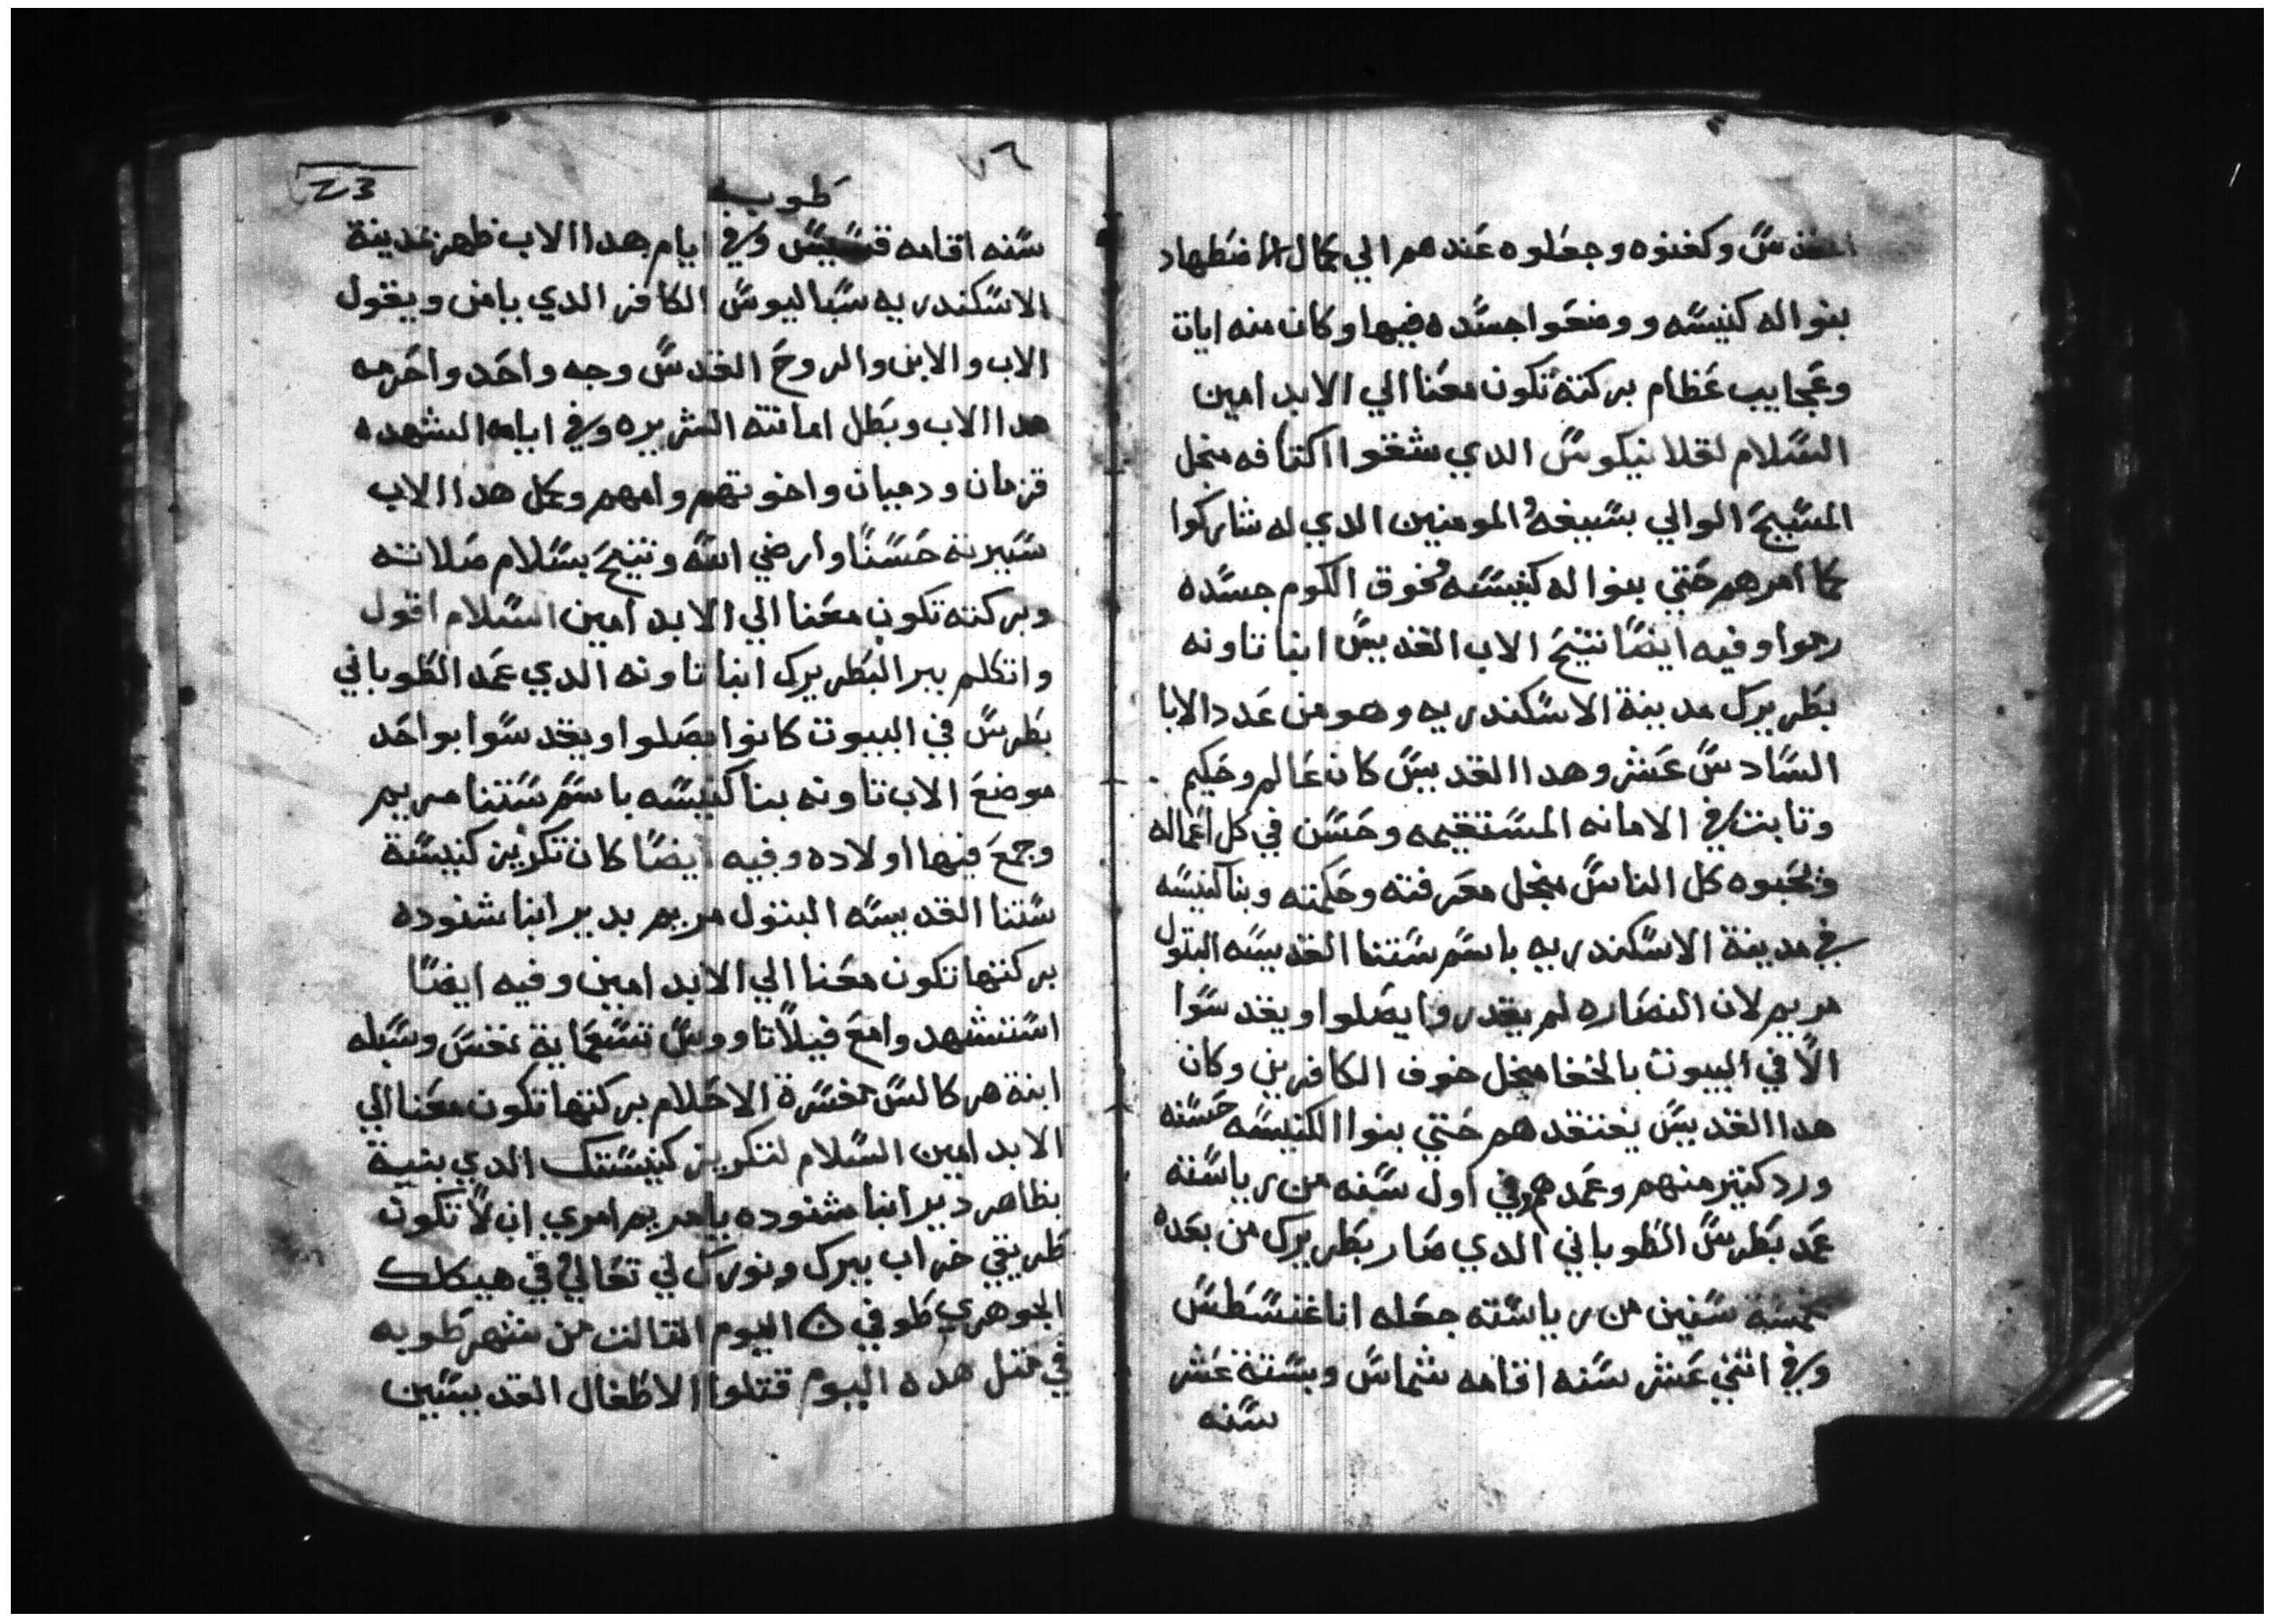 المقدس وكفنوه وجعلوه عندهم الي كمال الاضطهاد
بنوا له كنيسه ووضعوا جسده فيها وكان منه ايات
وعجايب عظام بركته تكون معنا الي الابد امين
السلام لقلانيكوس الدي شققوا اكتافه منجل
المسيح الوالي بسيفه المومنين الدي له شاركوا
كما امرهم حتي بنوا له كنيسه فوق الكوم جسده
رموا وفيه ايضا تنيح الاب القديس انبا تاونه
بطريرك مدينة الاسكندريه وهو من عدد الابا
السادس عشر وهدا القديس كان عالم وحكيم
وتابت في الامانه المستقيمه وحسن في كل اعماله
ويحبوه كل الناس منجل معرفته وحكمته وبنا كنيسه
في مدينة الاسكندريه باسم ستنا القديسه البتول
مريم لان النصاره لم يقدروا يصلوا ويقدسوا
الا في البيوت بالخفا منجل خوف الكافرين وكان
هدا القديس يفتقدهم حتي بنوا الكنيسه حسنه
ورد كتير منهم وعمدهم وفي اول سنه من رياسته
عمد بطرس الطوباني الدي صار بطريرك من بعده
خمسة سنين من رياسته جعله اناغنسطس
وفي اتني عشر سنه اقامه شماس وبستة عشر
سنه
٧٦
طوبه
سنه اقامه قسيس وفي ايام هدا الاب ظهر بمدينة
الاسكندريه سباليوس الكافر الدي يامن ويقول
الاب والابن والروح القدس وجه واحد واحرمه
هدا الاب وبطل امانته الشريره وفي ايامه الشهده
قزمان ودميان واخوتهم وامهم وكمل هدا الاب
سيرته حسنا وارضي الله وتنيح بسلام صلاته
وبركته تكون معنا الي الابد امين السلام اقول
واتكلم ببر البطريرك انبا تاونه الدي عمد الطوباني
بطرس في البيوت كانوا يصلوا ويقدسوا بواحد
موضع الاب تاونه بنا كنيسه باسم ستنا مريم
وجمع فيها اولاده وفيه ايضا كان تكريز كنيسة
ستنا القديسه البتول مريم بدير انبا شنوده
بركتها تكون معنا الي الابد امين وفيه ايضا
استشهد وامع فيلاتاووس تسعماية نفس وسبله
ابنة هركالس مفسرة الاحلام بركتها تكون معنا الي
الابد امين السلام لتكريز كنيستك الدي بنية
بظاهر دير انبا شنوده يا مريم امري ان لا تكون
طريقي خراب ببرك ونورك لي تعالي في هيكلك
الجوهري طوفي ۞ اليوم التالت من شهر طوبه
في متل هده اليوم قتلوا الاطفال القديسين